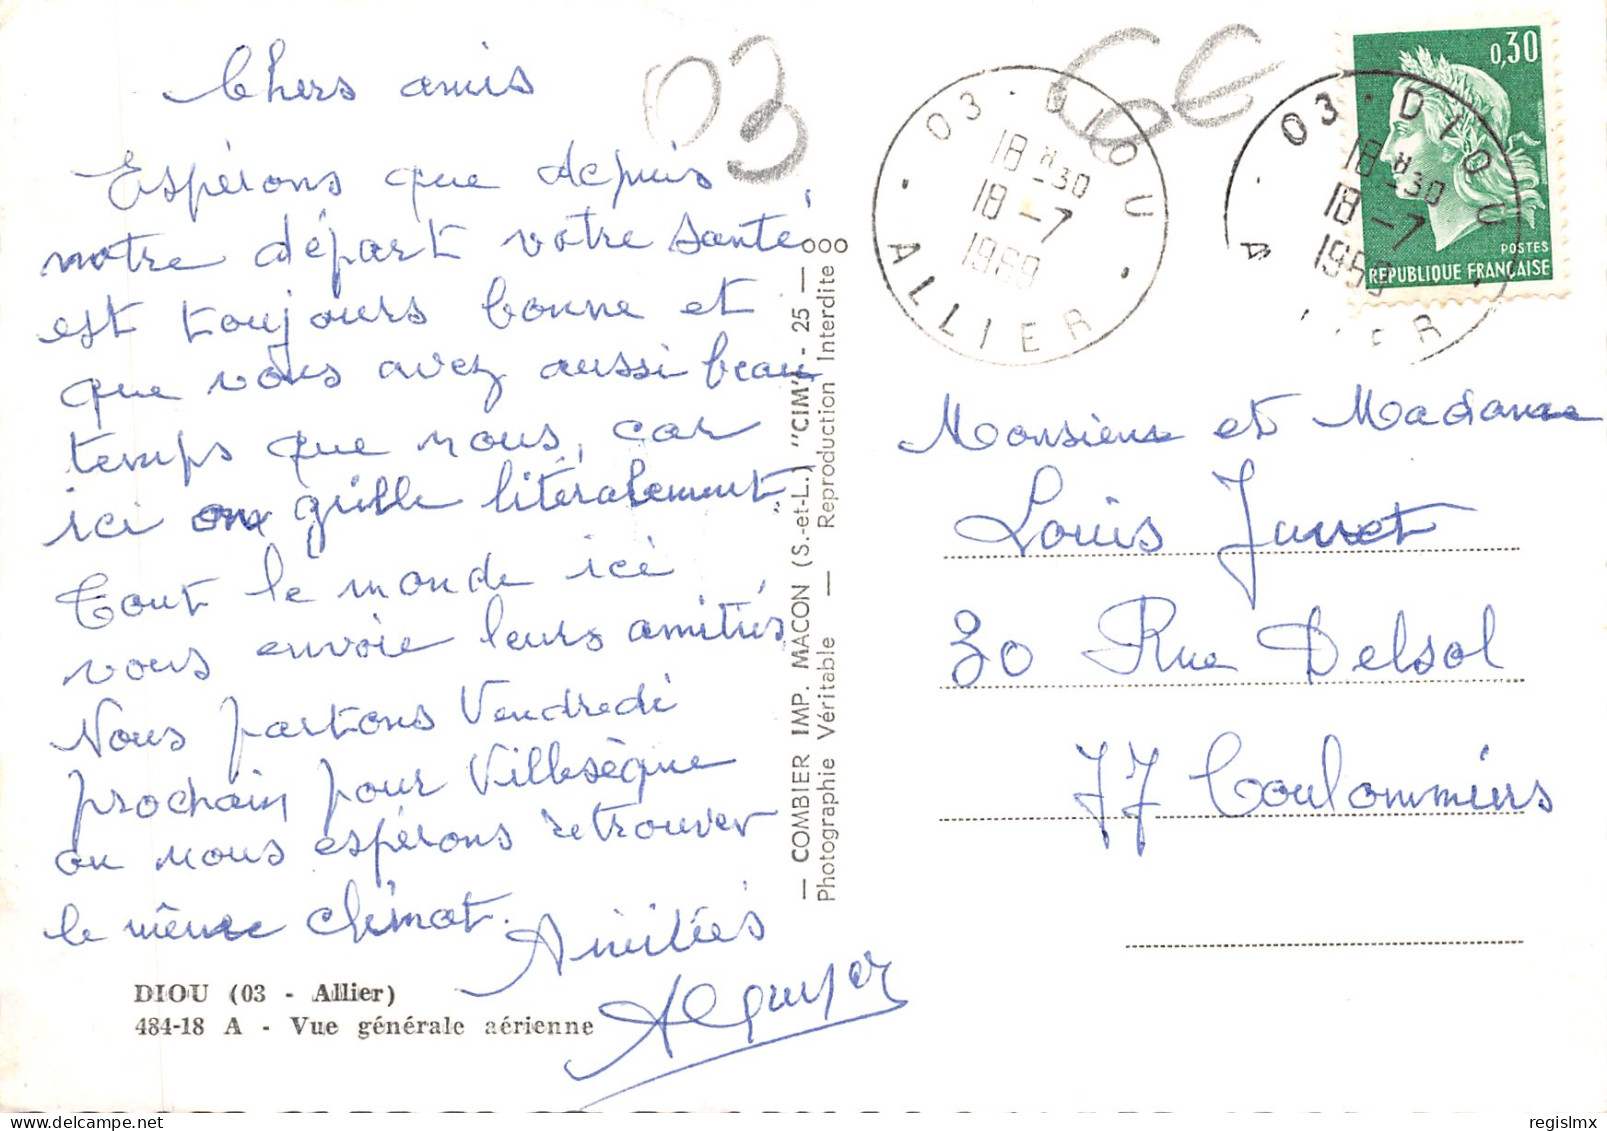 Chers amis
Espérons que depuis
notre départ votre santé
est toujours bonne et
que vous avez aussi beau
temps que nous, car
ici on grille litéralement
Tout le monde ici
vous envoie leurs amitiés
Nous partons Vendredi
prochain pour Villesèque
ou nous espérons retrouver
le même climat.
Amitiés
DIOU (03 - Allier)
484-18 A - Vue générale aérienne
03
6€
— COMBIER IMP. MACON (S.-et-L.) "CIM" - 25 — OOO
Photographie Véritable — Reproduction Interdite
03 · DIOU
18 H 30
18 - 7
1969
· ALLIER ·
03 · DIOU
18 H 30
18 - 7
1969
0,30
POSTES
REPUBLIQUE FRANÇAISE
Monsieur et Madame
Louis Juvet
30 Rue Delsol
77 Coulommiers
regislmx